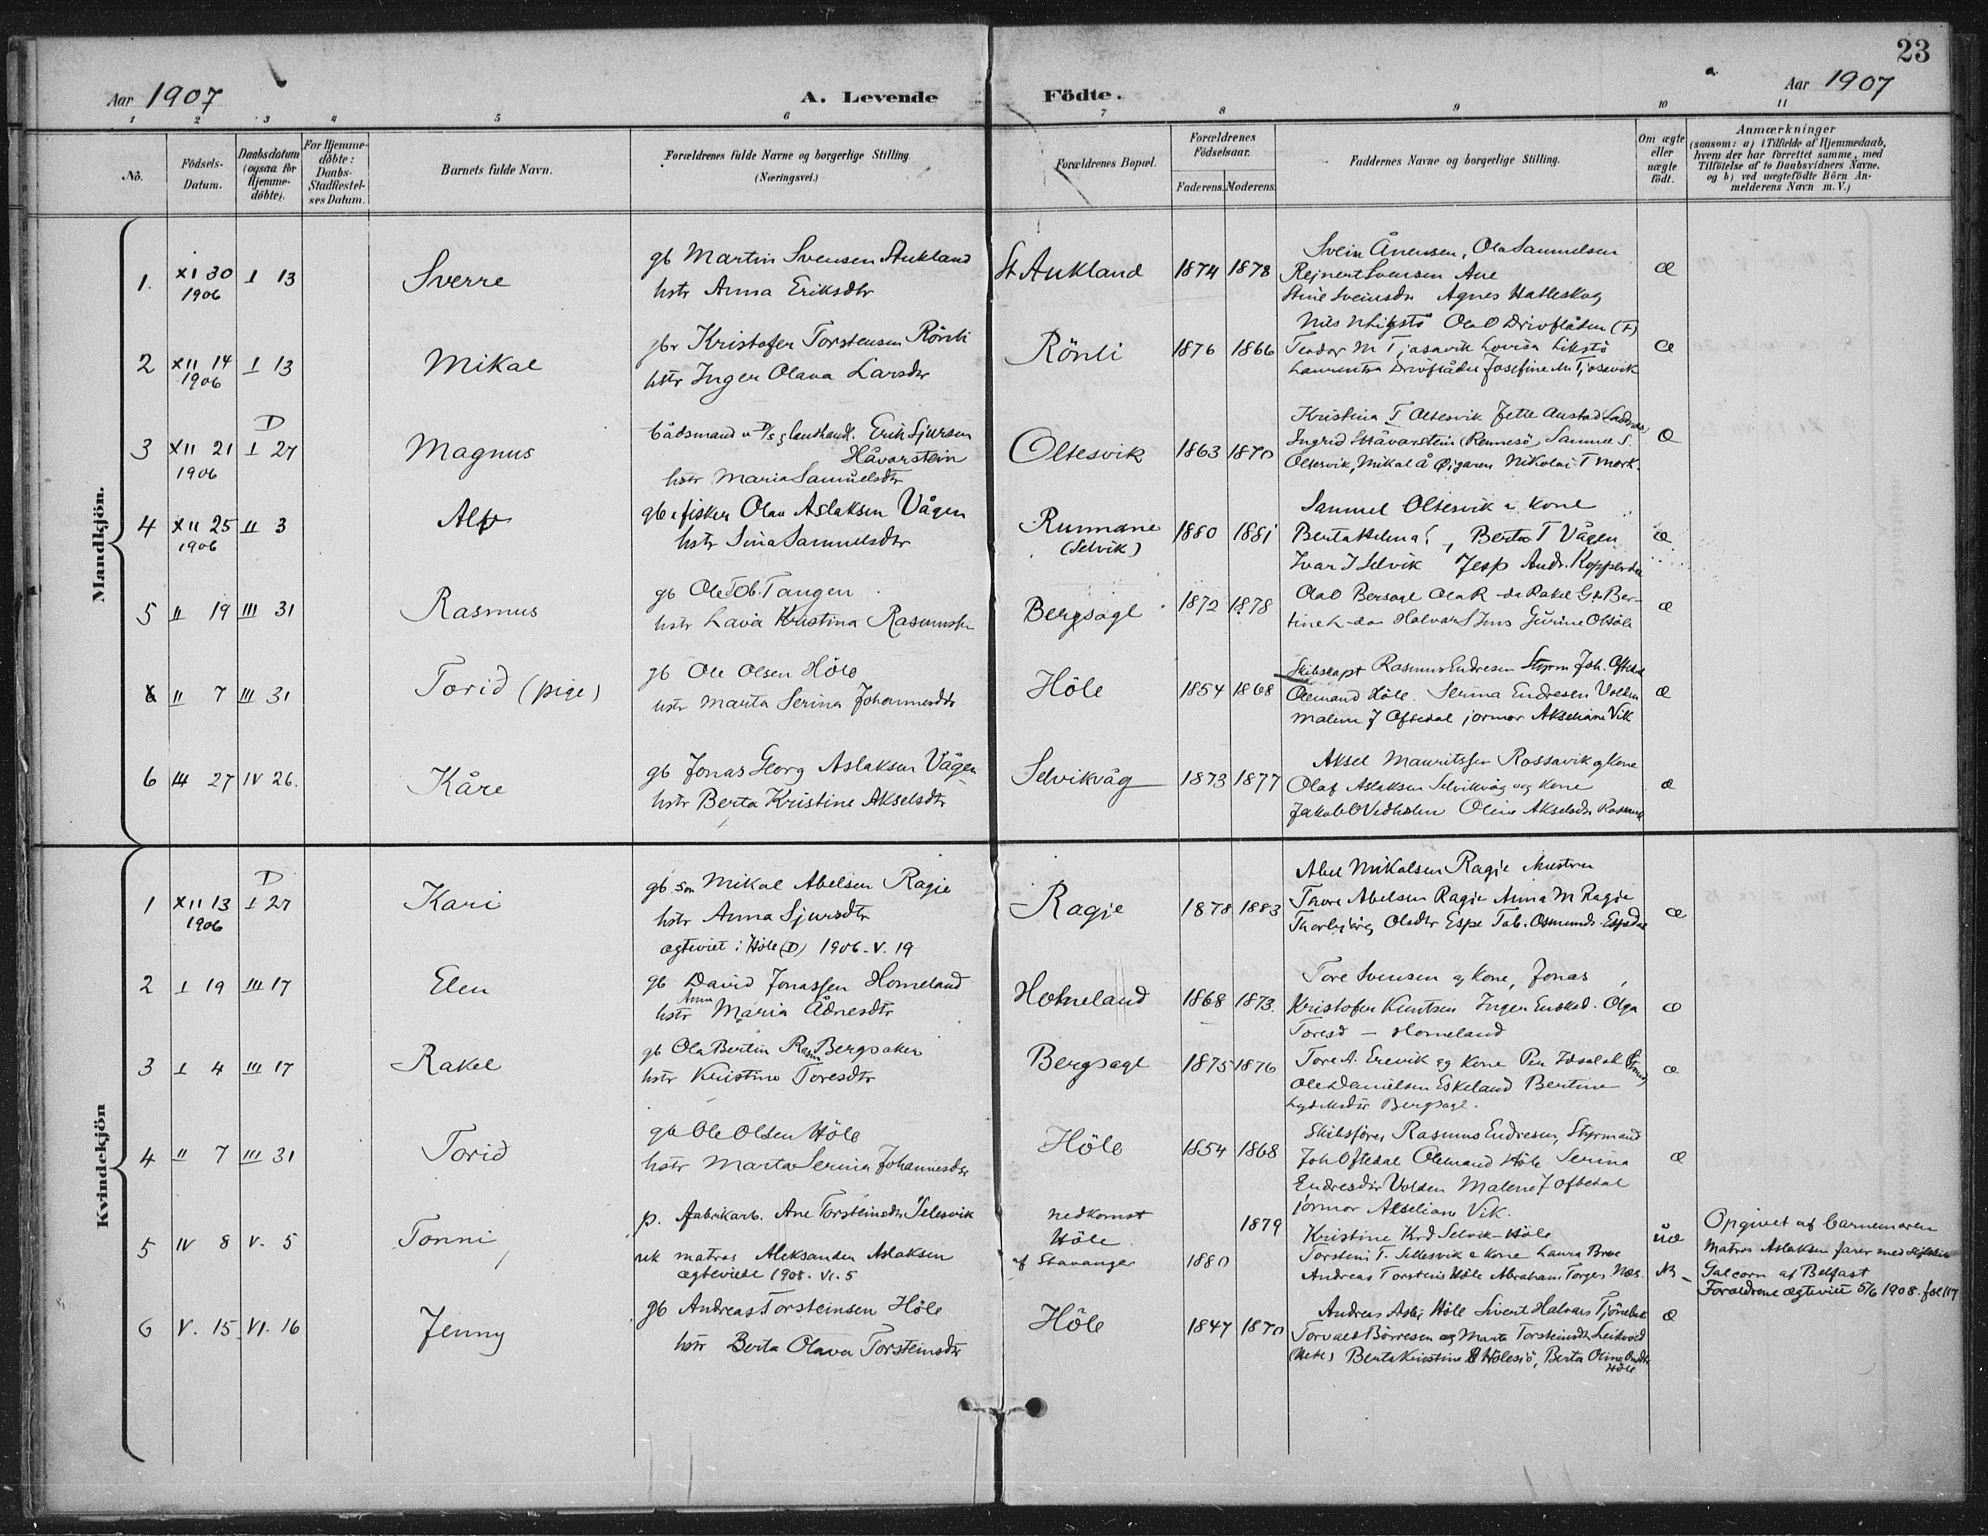 23
Aar 1907
A. Levende Födte.
Aar 1907
1 2 3 4 5 6 7 8 9 10 11
No.
Födsels-Datum.
Daabsdatum (ogsaa for Hjemme-döbte).
For Hjemme-döbte: Daabs-Stadfæstel-ses Datum.
Barnets fulde Navn.
Forældrenes fulde Navne og borgerlige Stilling (Næringsvei.)
Forældrenes Bopæl.
Forældrenes Födselsaar.
Faderens. Moderens.
Faddernes Navne og borgerlige Stilling.
Om ægte eller uægte födt.
Anmærkninger
(saasom: a) i Tilfælde af Hjemmedaab, hvem der har forrettet samme, med Tilföielse af to Daabsvidners Navne. og b) ved uægtefödte Börn An-melderens Navn m. V.)
Mandkjön.
1. XI 30 1906 I 13 Sverre
gb Martin Svensen Aukland
hstr Anna Eriksdtr
St Aukland 1874 1878
Svein Ånensen, Ola Samuelsen
Reinert Svensen Ane
Stine Sveinsdtr Agnes Hatleskog
æ
2 XII 14 1906 I 13 Mikal
gbr Kristofer Torstensen Rönli
hstr Inger Olava Larsdtr
Rönli 1876 1866
Teodor M Tjøsavik Lovisa
Drivflåden Josefine M Tjøsavik
æ
3 XII 21 1906 D I 27 Magnus
Erik Sjursen
Håvarstein
hstr Maria Samuelsdtr
Oltesvik 1863 1870
Kristina T Oltesvik Jette Austad
Ingrid Håvarstein (Rennesö) Samuel S.
Oltesvik, Mikal Å Øigaren Nikolai T Mork.
æ
4 XII 25 1906 II 3 Alf
gb & fisker Olav Aslaksen Vågen
hstr Sina Samuelsdtr
Runnane (Selvik) 1880 1881
Samuel Oltesvik & Kone
Berta T Vågen
Ivar I Selvik Jesp Andr.
æ
5 II 19 III 31 Rasmus
gb Ole Tob. Tangen
hstr Lava Kristina Rasmusdtr
Bergsagl 1872 1878
Ola O Bersagl Ola R - da Rakel
Halvar Gurine
æ
6 II 7 III 31 Torid (pige)
gb Ole Olsen Höle
hstr Marta Serina Johannesdtr
Höle 1854 1868
Skibskapt Rasmus Endresen Styrm Joh. Oftedal
Olemand Höle. Serina Endresen Volden
Malene J Oftedal jormor Akseliane Vik
æ
6 III 27 IV 26. Kåre
gb Jonas Georg Aslaksen Vågen
hstr Berta Kristine Akselsdtr
Selvikvåg 1873 1877
Aksel Mauritsen Rossavik og Kone
Olaf Aslaksen Selvikvåg og Kone
Jakob O Vedholm Oline Akselsdtr
æ
Kvindekjön
1 XII 13 1906 D I 27 Kari
gb. søn Mikal Abelsen Ragje
hstr Anna Sjursdtr
ægteviet i Höle (D) 1906. V. 19
Ragje 1878 1883
Abel Mikalsen Ragje
Tore Abelsen Ragje Anna M Ragje
Thorbjørg Olsdtr Espe Tob. Osmunds. Espedal
æ
2 I 19 III 17 Elen
gb David Jonassen Homeland
hstr Anna Maria Ådnesdtr
Homeland 1868 1873.
Tore Svensen og Kone, Jonas,
Kristofer Knutsen Inger Olga
Toresd — Homeland
æ
3 I 4 III 17 Rakel
gb Ola Bertin Rasm Bergsaker
hstr Kristine Toresdtr
Bergsagl 1875 1876
Tore A. Erevik og Kone Per
Ole Danielsen Eskeland Bertine
Bergsagl.
æ
4 II 7 III 31 Torid
gb Ole Olsen Höle
hstr Marta Serina Johannesdtr
Höle 1854 1868
Skibsfører Rasmus Endresen, Styrmand
Joh Oftedal Olemand Höle Serina
Endresdtr Volden Malene J Oftedal
jormor Akseliane Vik.
æ
5 IV 8 V. 5 Tonni
p. fabrikarb. Ane Torsteinsdtr Selesvik
uk matros Aleksander Aslaksen
ægteviede 1908. VI. 5
nedkomst Höle
af Stavanger 1880 1879
Kristine Krd Selvik - Höle
Torstein T. Sellesvik & Kone Laura Broe
Andreas Torsteins Höle Abraham Torges. Næs.
uæ
Opgivet af barnemoren
Matros Aslaksen farer med
Galcorn af Belfast
Forældrene ægteviet 5/6 1908. fol 117
6 V. 15 VI. 16 Jenny
gb Andreas Torsteinsen Höle
hstr Berta Olava Torsteinsdtr
Höle 1847 1870
Andreas Höle Sivert Halvars
Torvald Börresen og Marta Torsteinsdtr
Berta Kristine Hölesjö, Berta Oline
Höle
æ